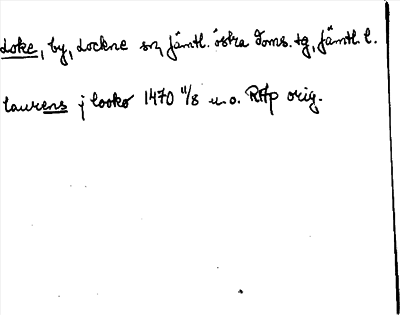 Loke, by, Lockne sn, Jämtl. östra doms. tg, Jämtl. l.
laurens j looko 1470 11/8 u.o. RAp orig.